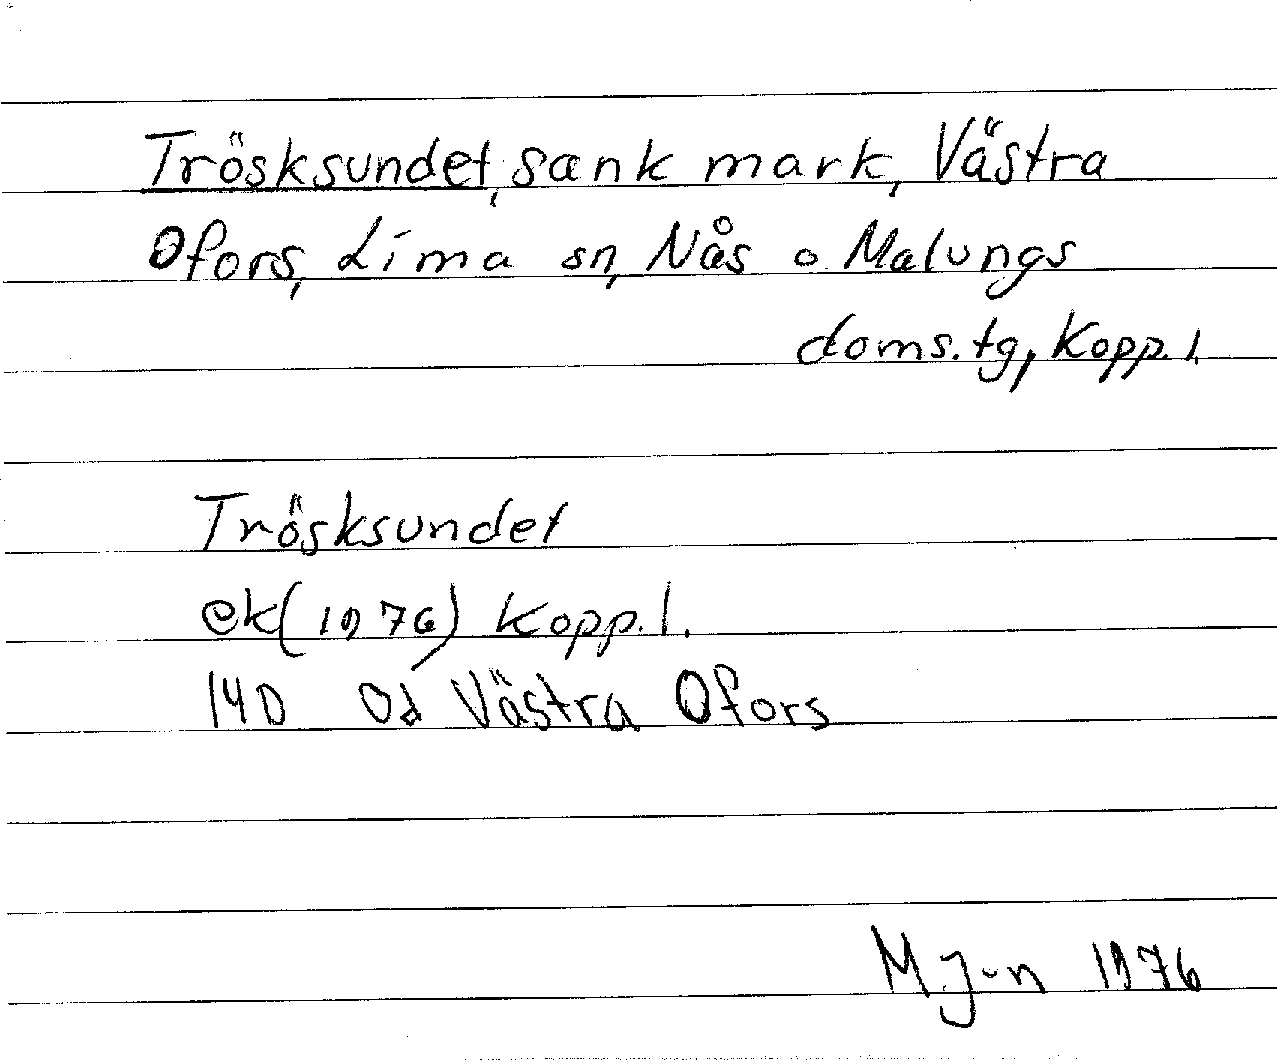 Trösksundet, sank mark, Västra
Ofors, Lima sn, Nås o Malungs
doms.tg, Kopp. l.
Trösksundet
ek (1976) Kopp. l.
14D 0d Västra Ofors
M J-n 1976